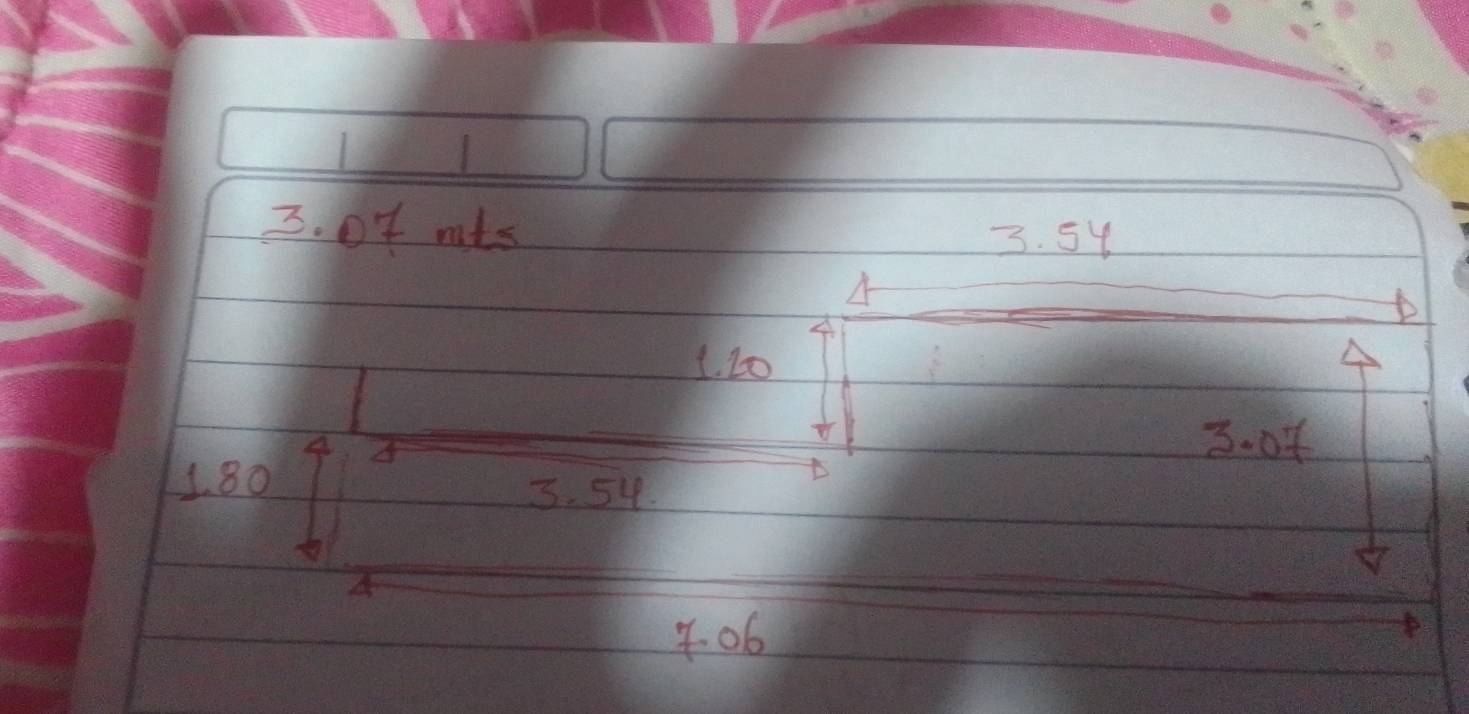 3.07 mts
3.54
1.10
3.07
1.80
3.54
7.06